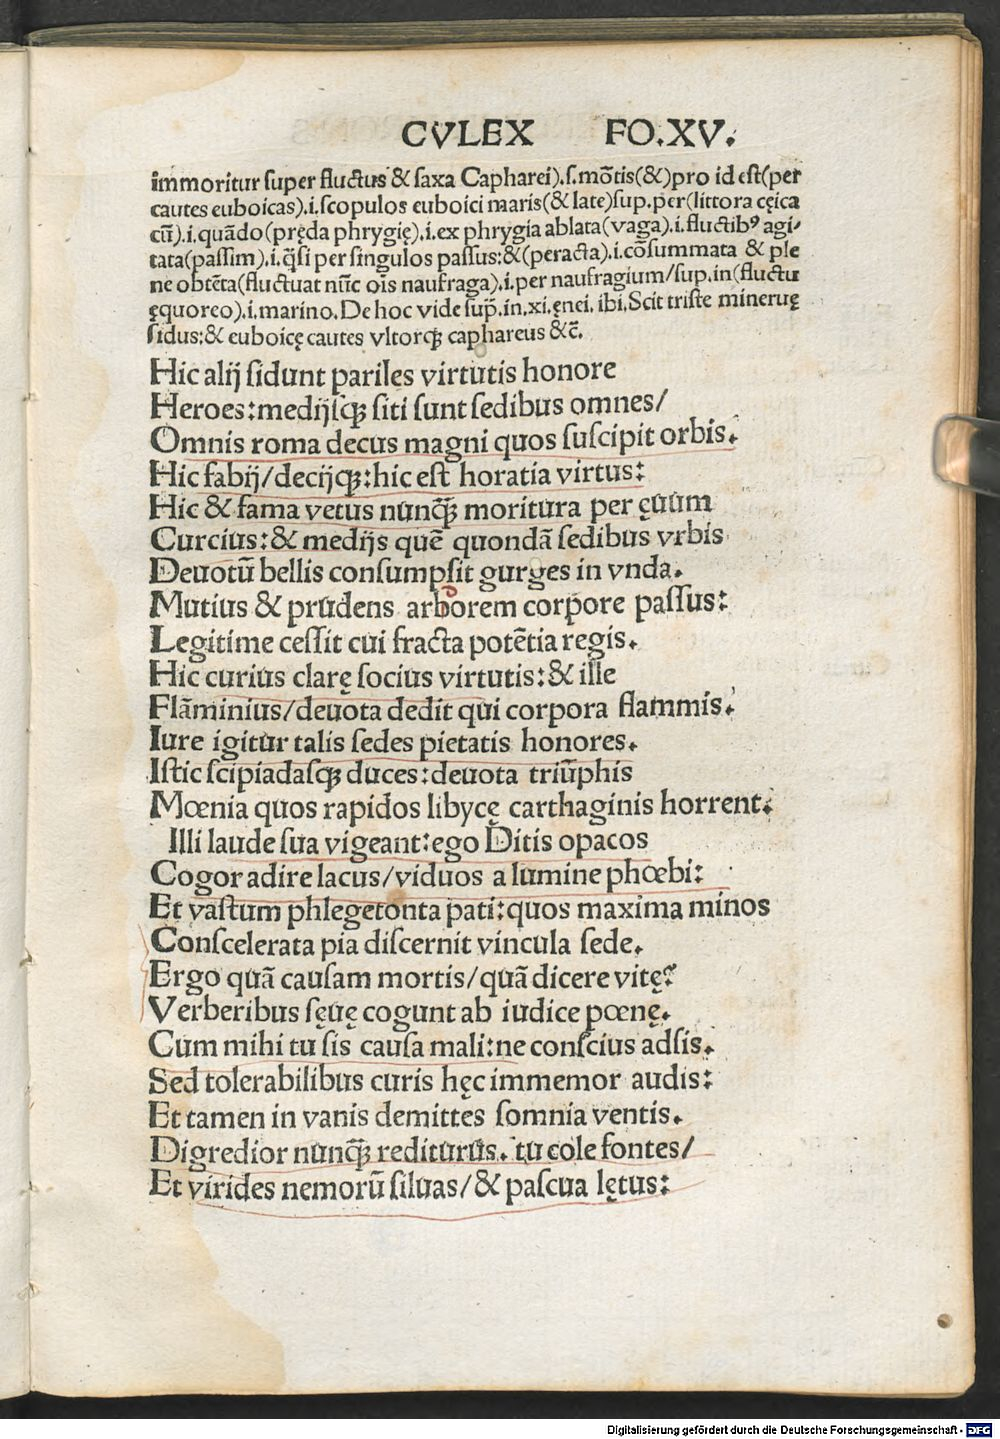 CVLEX FO.XV.
immoritur super fluctus & saxa Capharei).s.mōtis(&)pro id est(per
cautes euboicas).i.scopulos euboici maris(& late)sup.per(littora cęica
cū).i.quādo(pręda phrygię).i.ex phrygia ablata(vaga).i.fluctibꝰ agi/
tata(passim).i.q̄si per singulos passus:&(peracta).i.cōsummata & ple
ne obtēta(fluctuat nūc oīs naufraga).i.per naufragium/sup.in(fluctu
ęquoreo).i.marino.De hoc vide sup̄.in.xi.ęnei. ibi.Scit triste mineruę
sidus:& euboicę cautes vltorq; caphareus &c̄.
Hic alij sidunt pariles virtutis honore
Heroes:medijsq; siti sunt sedibus omnes/
Omnis roma decus magni quos suscipit orbis.
Hic fabij/decijq;:hic est horatia virtus:
Hic & fama vetus nunq̄; moritura per ęuum
Curcius:& medijs quē quondā sedibus vrbis
Deuotū bellis consumpsit gurges in vnda.
Mutius & prudens arborem corpore passus:
Legitime cessit cui fracta potētia regis.
Hic curius clarę socius virtutis:& ille
Flāminius/deuota dedit qui corpora flammis.
Iure igitur talis sedes pietatis honores.
Istic scipiadasq; duces:deuota triūphis
Mœnia quos rapidos libycę carthaginis horrent.
Illi laude sua vigeant:ego Ditis opacos
Cogor adire lacus/viduos a lumine phœbi:
Et vastum phlegetonta pati:quos maxima minos
Conscelerata pia discernit vincula sede.
Ergo quā causam mortis/quā dicere vitę?
Verberibus sęuę cogunt ab iudice pœnę.
Cum mihi tu sis causa mali:ne conscius adsis.
Sed tolerabilibus curis hęc immemor audis:
Et tamen in vanis demittes somnia ventis.
Digredior nunq̄; rediturus. tu cole fontes/
Et virides nemorū siluas/& pascua lętus:
Digitalisierung gefördert durch die Deutsche Forschungsgemeinschaft - DFG